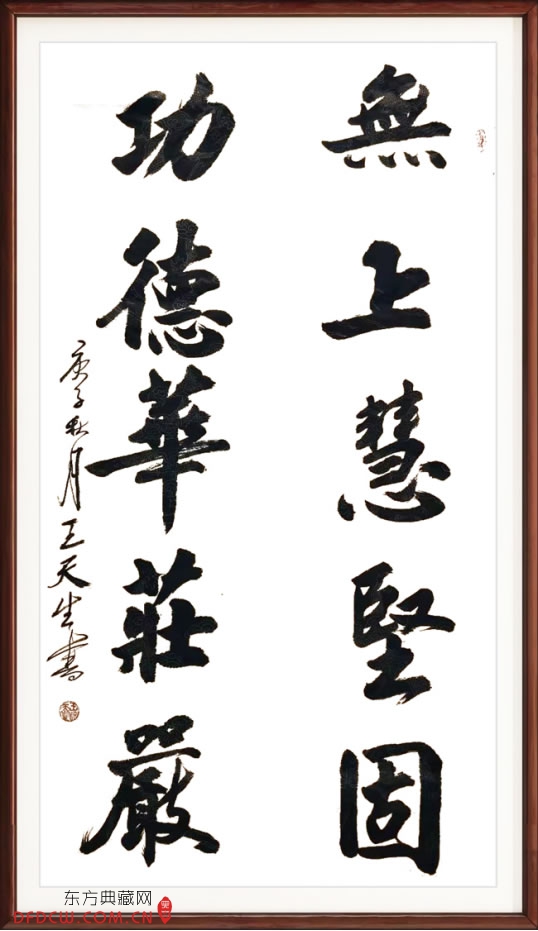 無上慧堅固
功德華莊嚴
庚子秋月王天生書
东方典藏网
DFDCW.COM.CN